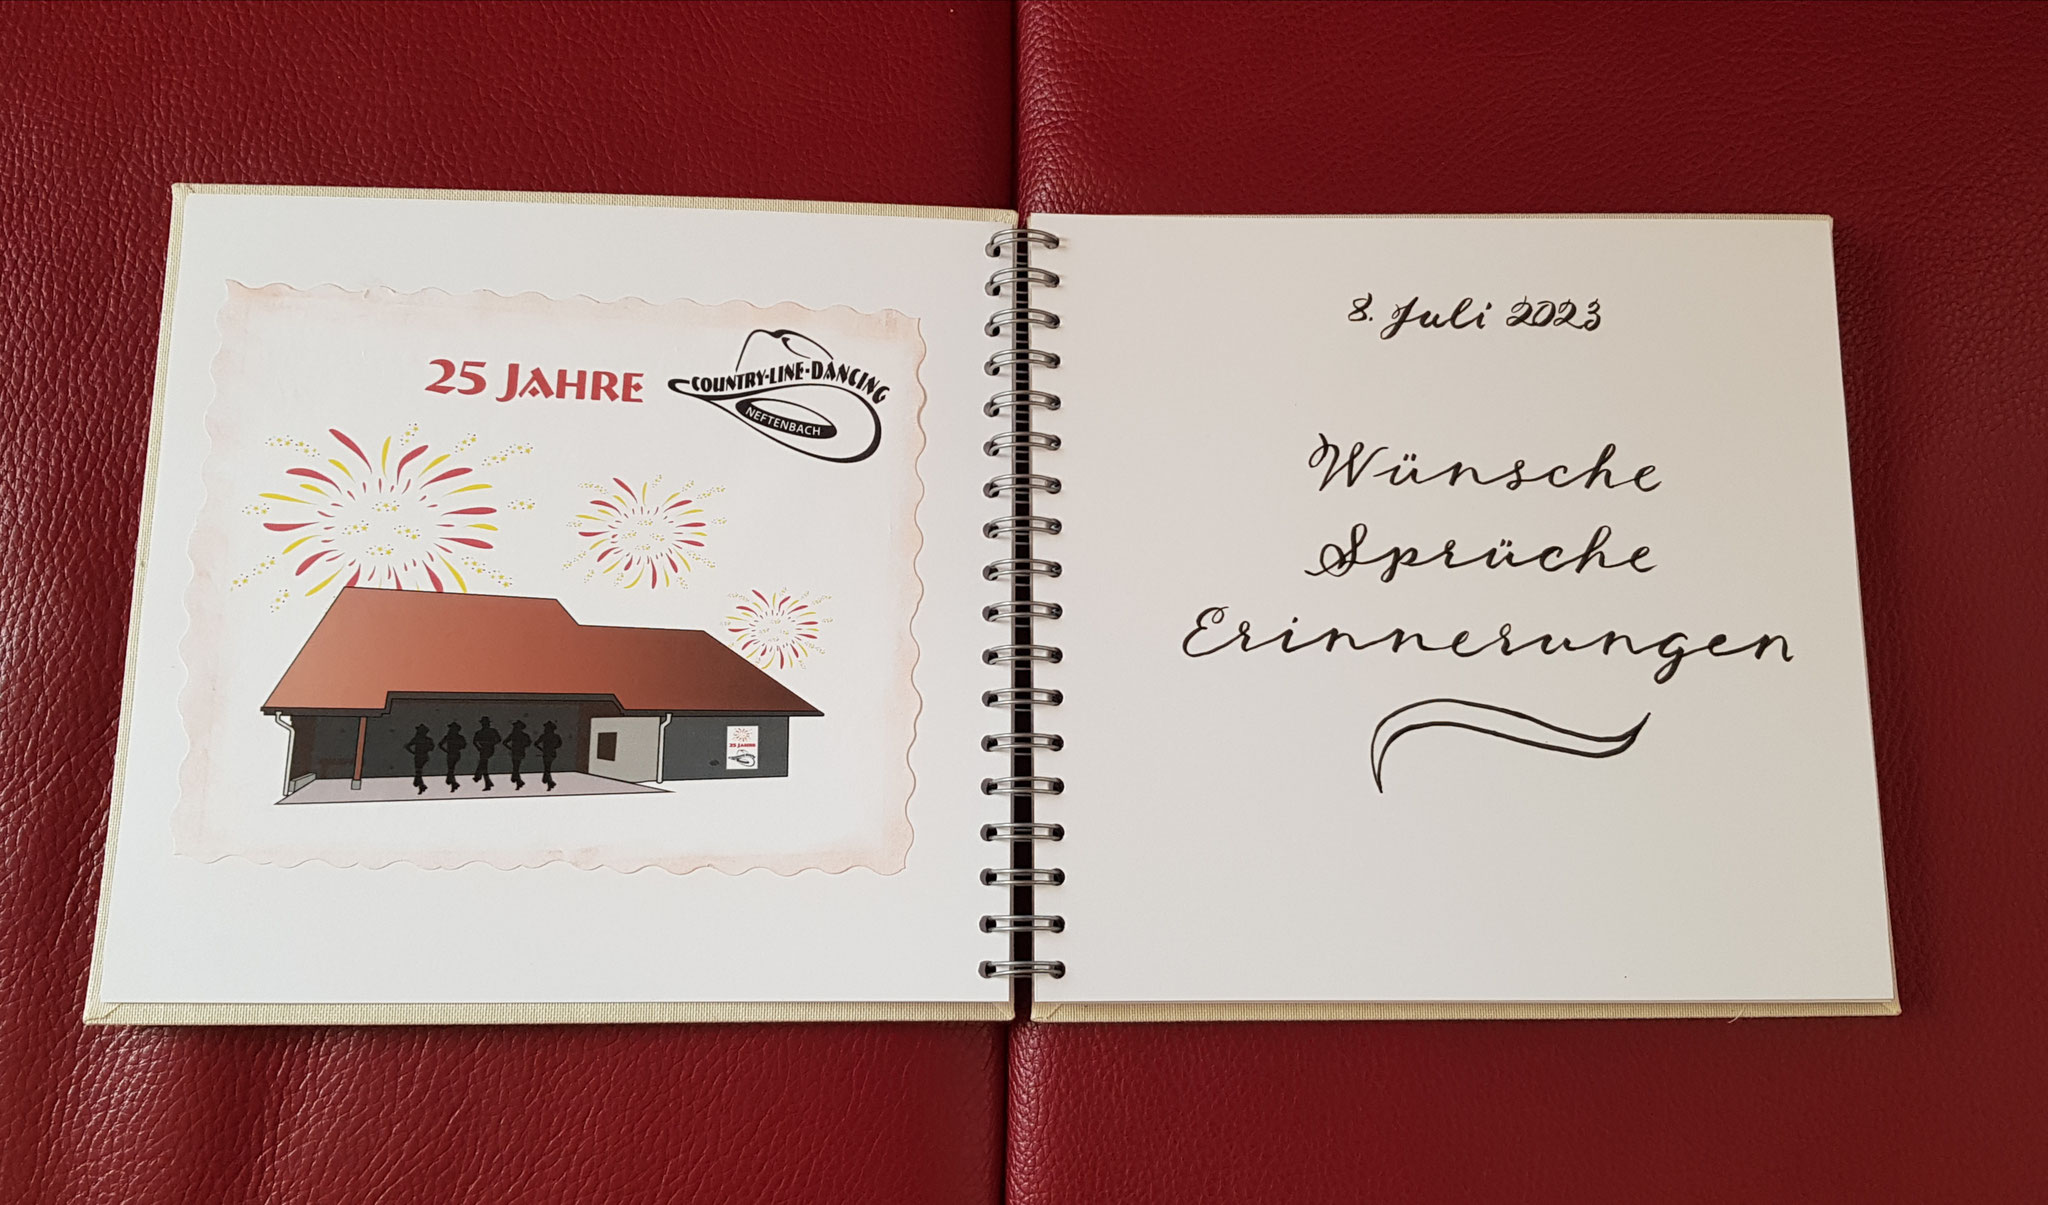 25 JAHRE
COUNTRY-LINE-DANCING
NEFTENBACH
25 JAHRE
8. Juli 2023
Wünsche
Sprüche
Erinnerungen